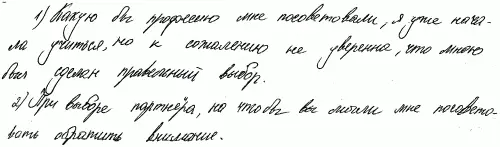 1) Какую бы профессию мне посоветовали, я уже нача-
ла учиться, но к сожалению не уверенна, что мною
был сделан правельный выбор.
2) При выборе партнёра, на что бы вы могли мне посовето-
вать обратить внимание.